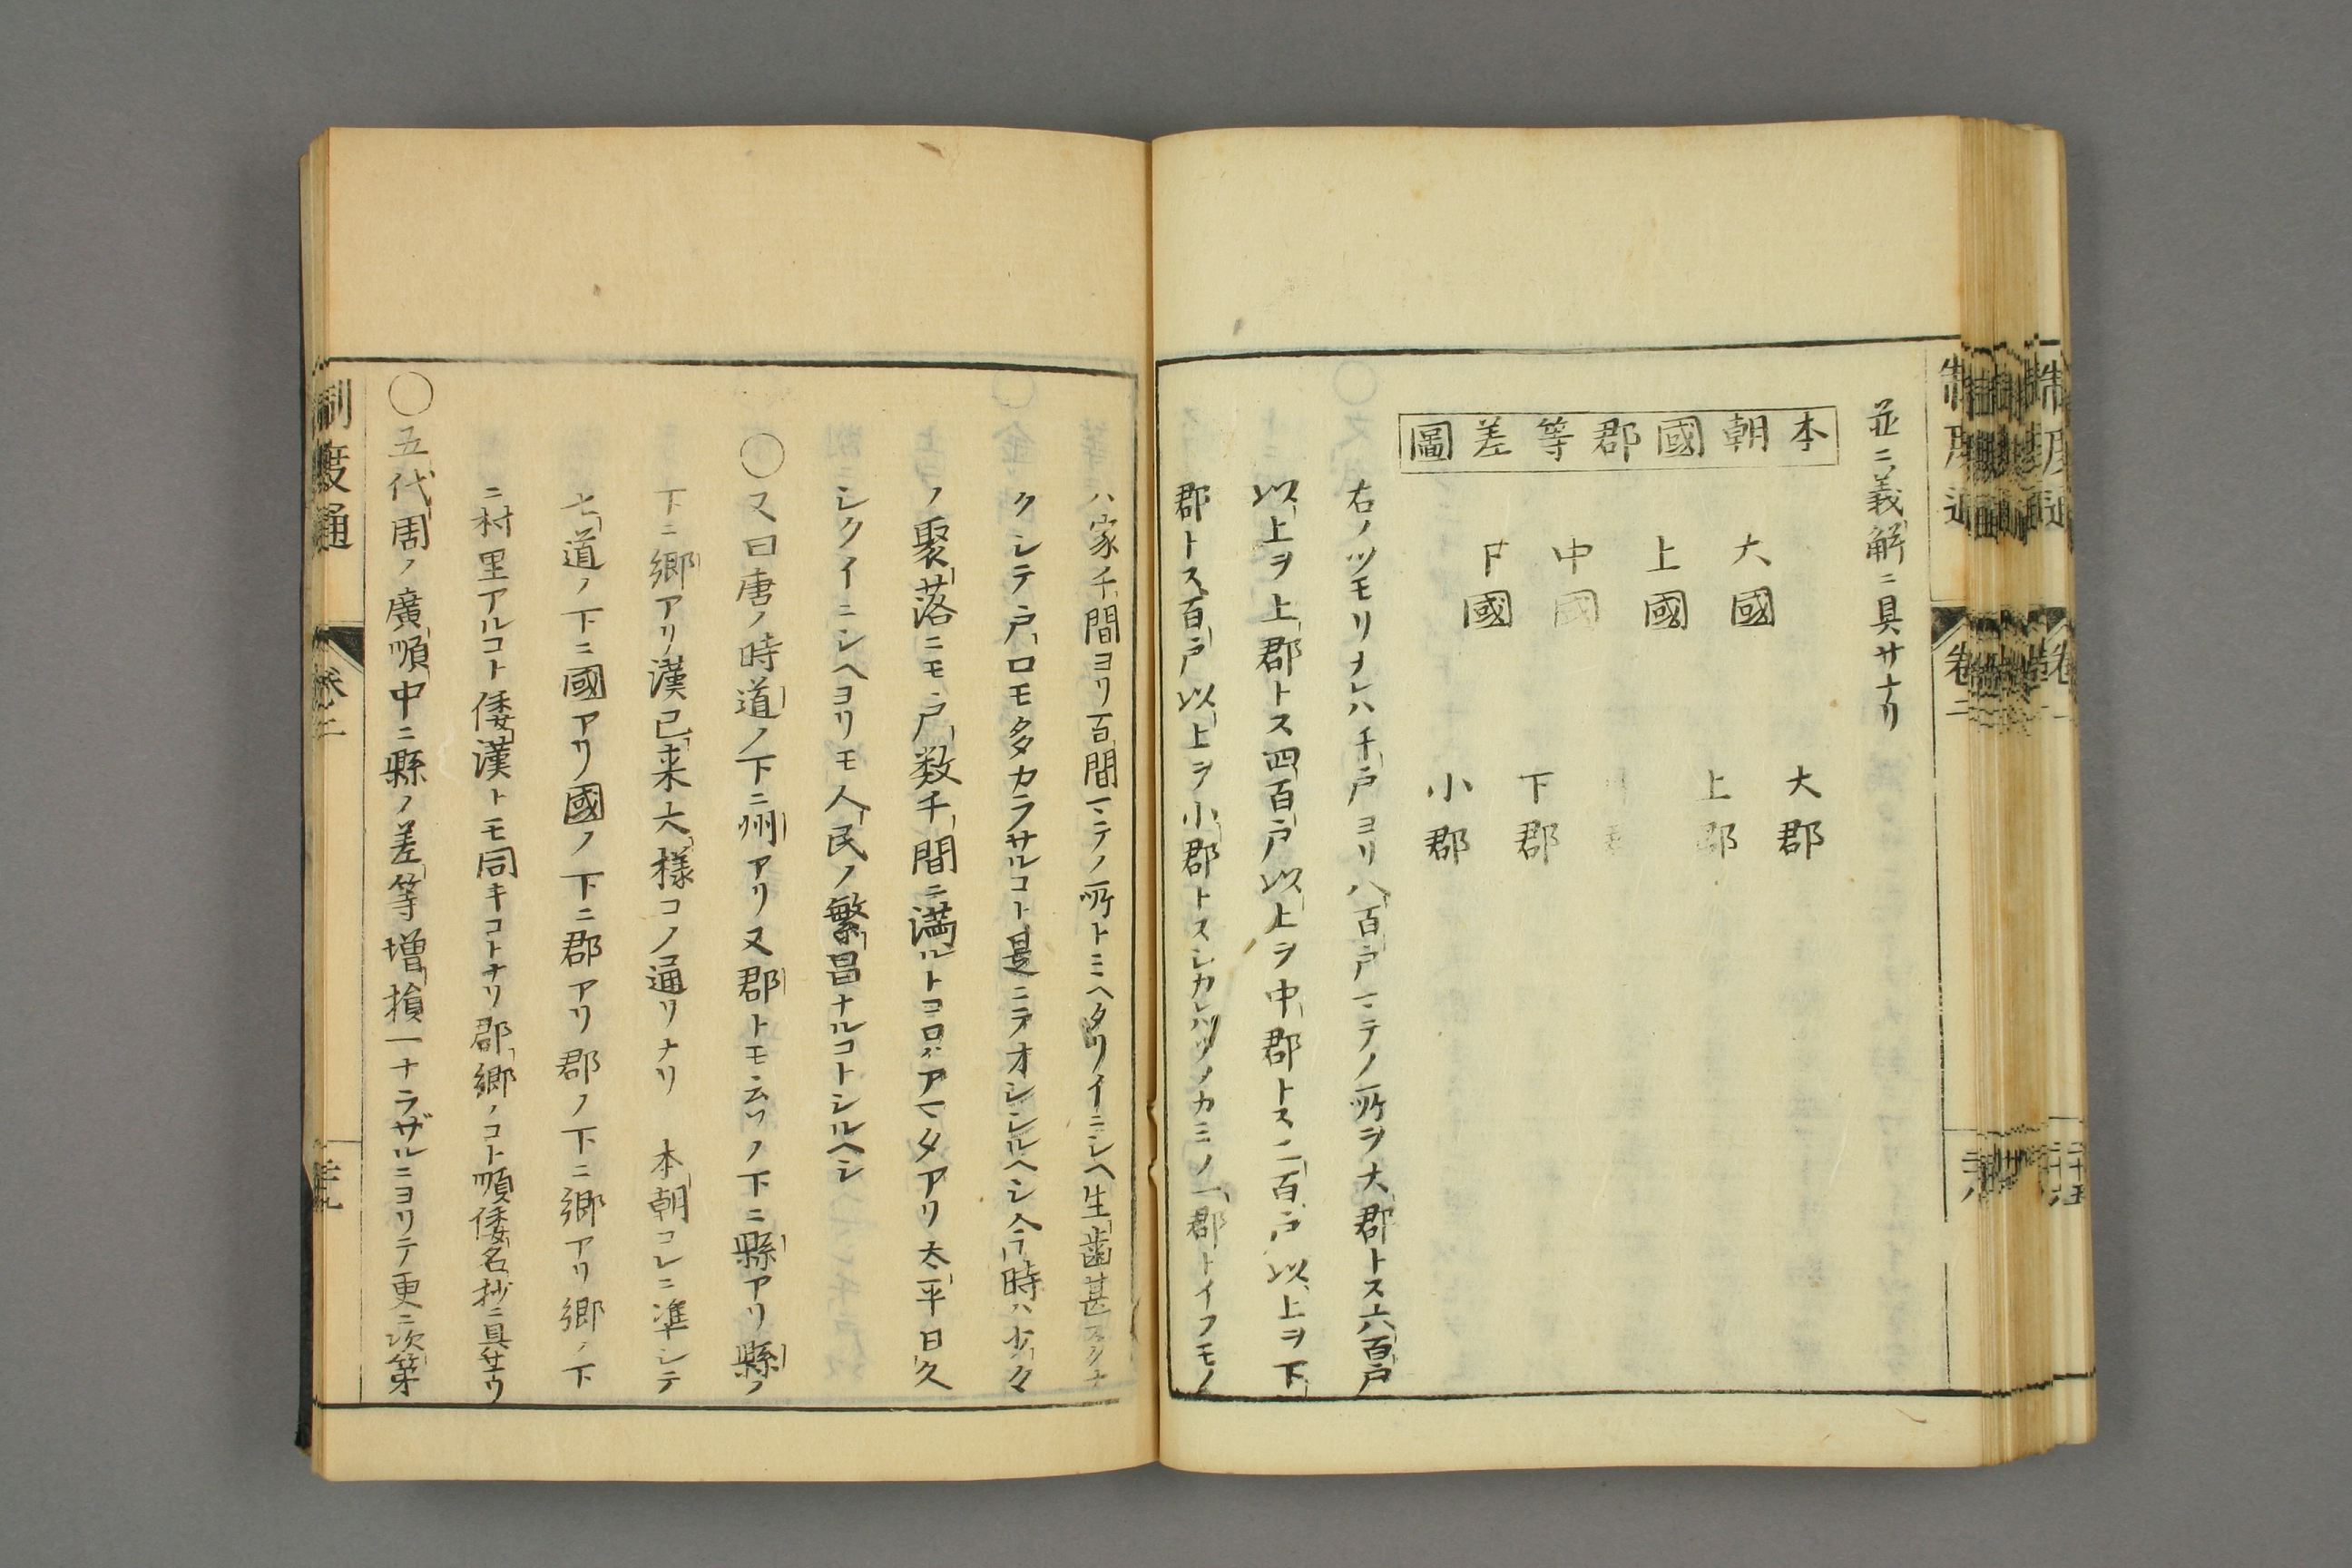 並ニ義解ニ具サナリ
本朝國郡等差圖
大國
上國
中國
下國
大郡
上郡
下郡
小郡
右ノツモリナレハ千戸ヨリ八百戸マテノ所ヲ大郡トス六百戸
以上ヲ上郡トス四百戸以上ヲ中郡トス二百戸以上ヲ下
郡トス百戸以上ヲ小郡トスシカレハソノカミノ一郡トイフモノ
ハ家千間ヨリ百間マテノ所トミヘタリイニシヘ生歯甚スクナ
クシテ戸口モ多カラサルコト是ニテオシシルヘシ今時ハ少々
ノ聚落ニモ戸数千間ニ満ルトコロハアマタアリ太平日久
シクイニシヘヨリモ人民ノ繁昌ナルコトシルヘシ
〇又曰唐ノ時道ノ下ニ州アリ又郡トモ云フノ下ニ縣アリ縣ノ
下ニ郷アリ漢已来大様コノ通リナリ 本朝コレニ準シテ
七道ノ下ニ國アリ國ノ下ニ郡アリ郡ノ下ニ郷アリ郷ノ下
ニ村里アルコト倭漢トモ同キコトナリ郡郷ノコト順倭名抄ニ具サナリ
〇五代周ノ廣順中ニ縣ノ差等増損一ナラザルニヨリテ更ニ次第
制度通
卷二